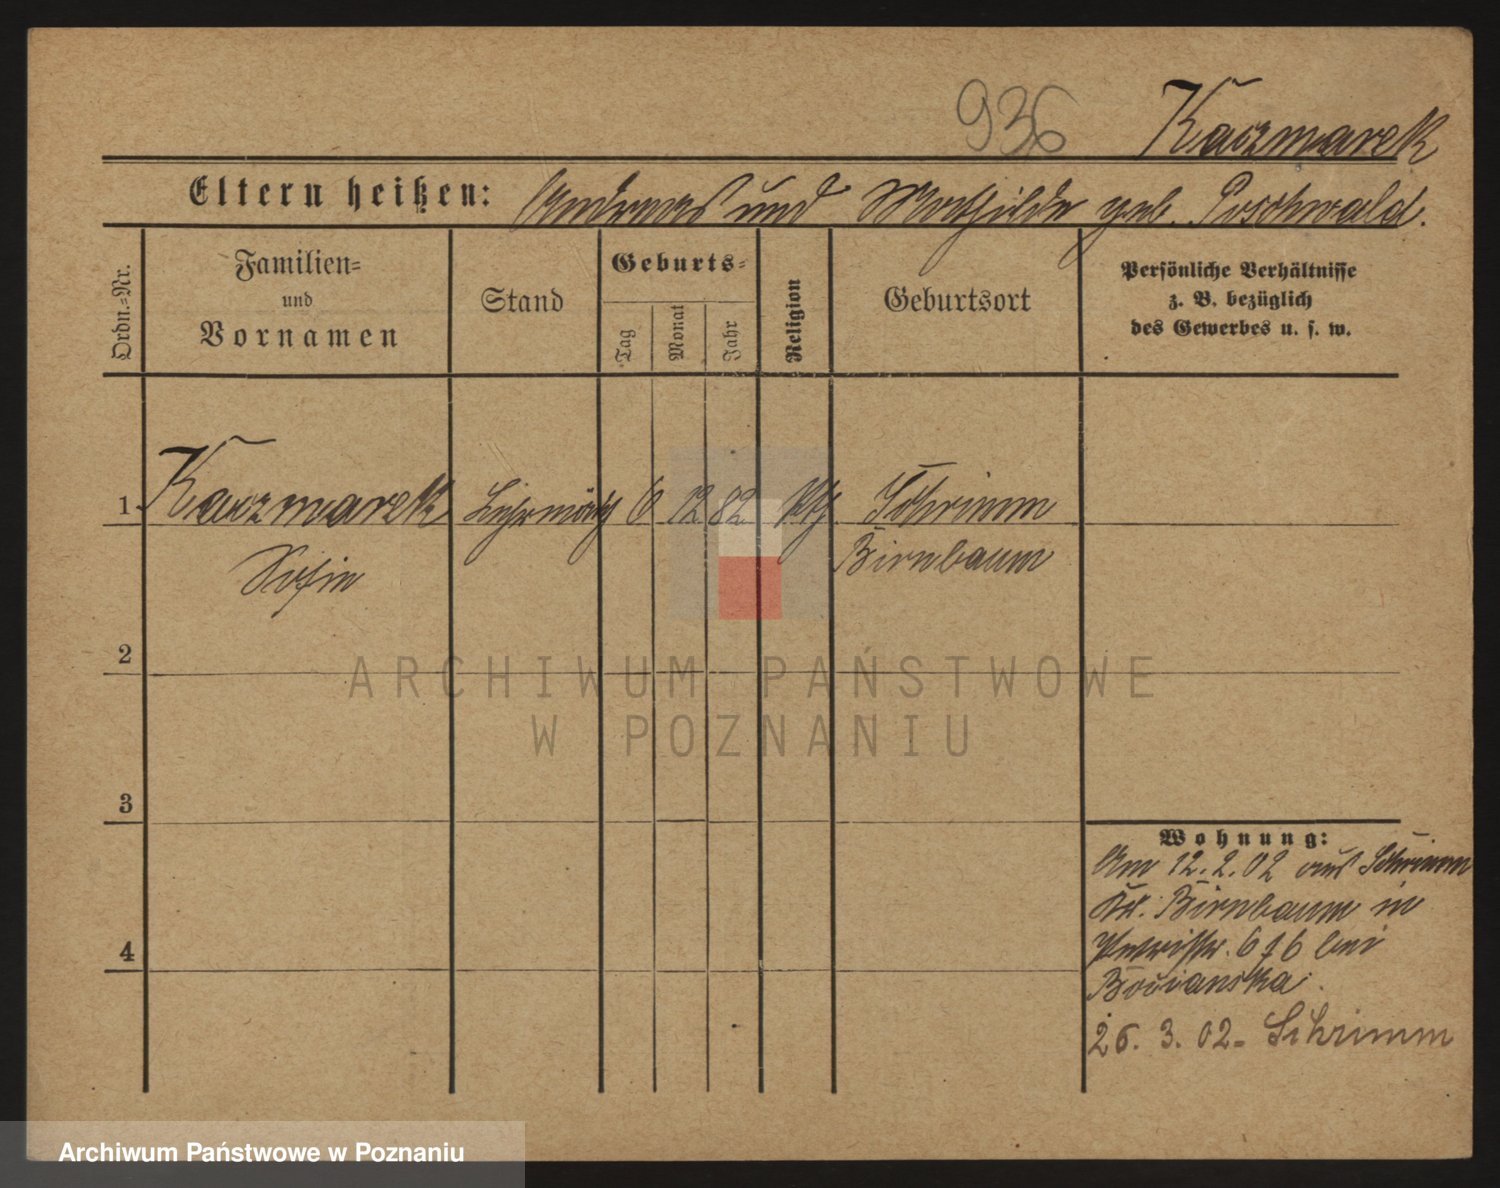 936 Kaczmarek
Eltern heißen: Andreas und Mathilde geb. Poschwald.
Ordn.-Nr.
Familien-
und
Vornamen
Stand
Geburts-
Tag
Monat
Jahr
Religion
Geburtsort
Persönliche Verhältnisse
z. B. bezüglich
des Gewerbes u. s. w.
1 Kaczmarek 6 12 82 kth. Schrimm
Sofie Birnbaum
2
3
4
Wohnung:
Am 12.2.02 aus Schrimm
Kr. Birnbaum in
Petristr. 6 bei
Bocianska.
26. 3. 02 - Schrimm
ARCHIWUM PAŃSTWOWE
W POZNANIU
Archiwum Państwowe w Poznaniu